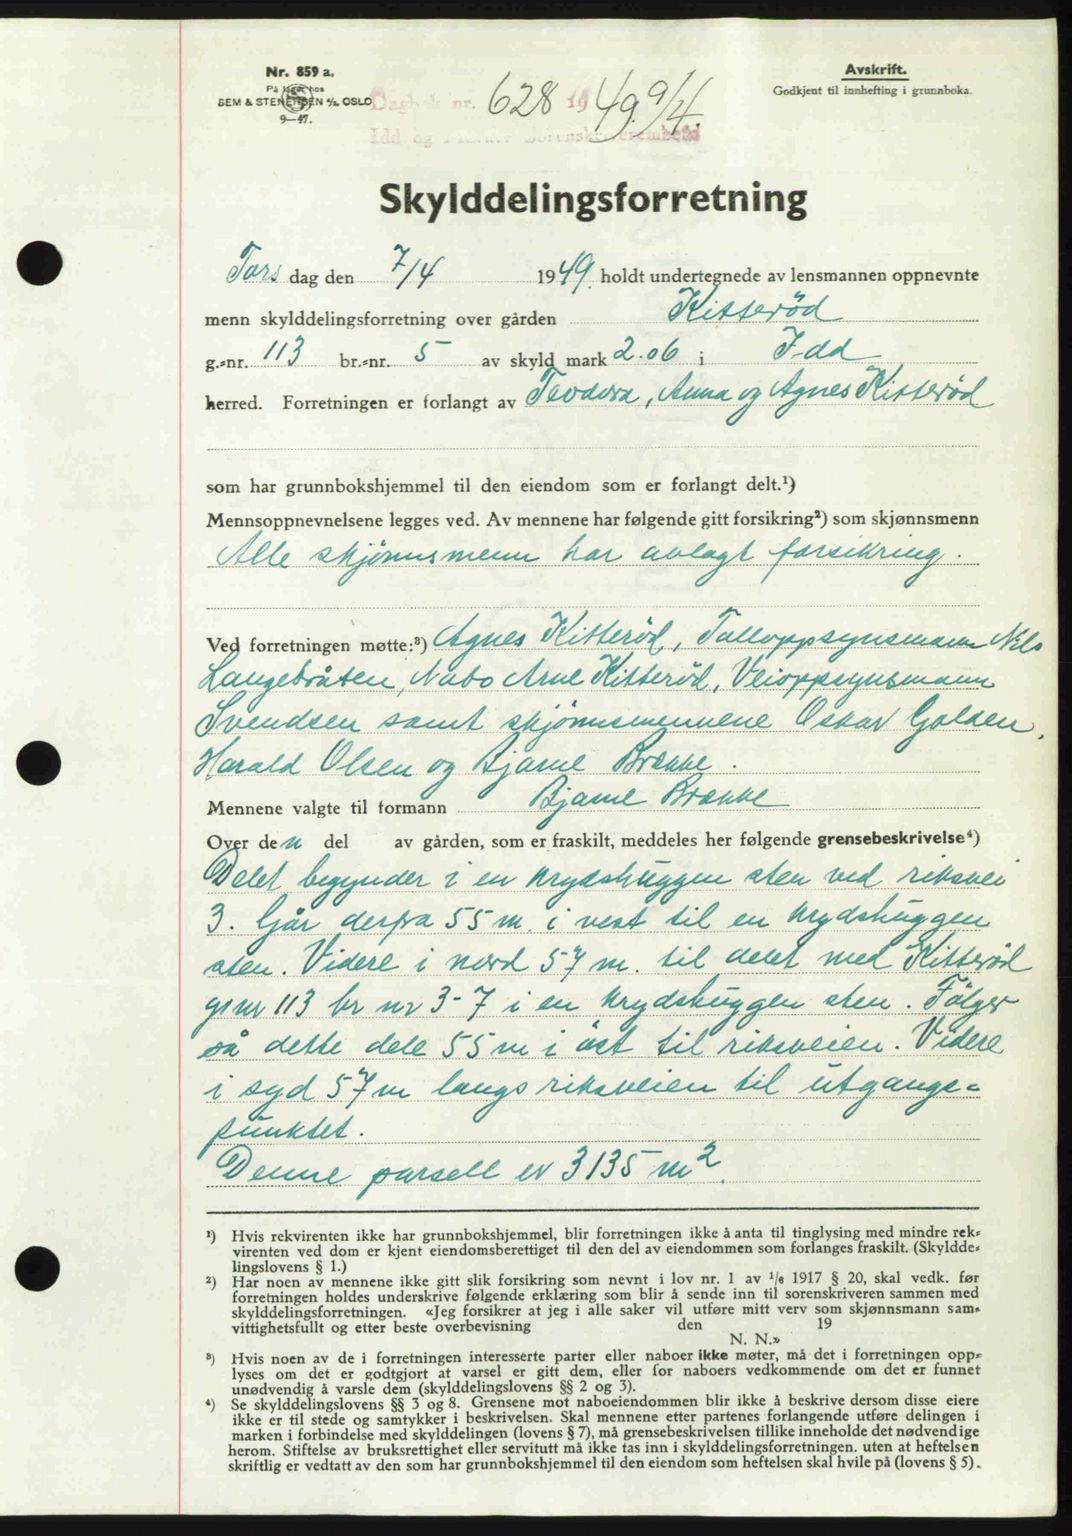 Nr. 859 a.
På lager hos
SEM & STENERSEN A/S. OSLO
9—47.
Avskrift.
Godkjent til innhefting i grunnboka.
Dagbok nr. 628 1949 9/4.
Idd og Marker Sorenskriverembede
Skylddelingsforretning
Tors dag den 7/4 1949. holdt undertegnede av lensmannen oppnevnte
menn skylddelingsforretning over gården Kitterød
g.-nr. 113 br.-nr. 5 av skyld mark 2.06 i Idd
herred. Forretningen er forlangt av Teodora, Anna og Agnes Kitterød
som har grunnbokshjemmel til den eiendom som er forlangt delt.¹)
Mennsoppnevnelsene legges ved. Av mennene har følgende gitt forsikring²) som skjønnsmenn
Alle skjönnsmenn har avlagt forsikring.
Ved forretningen møtte:³) Agnes Kitteröd, Telloppsynsmann Nils
Langebråten, Nabo Arne Kitteröd, Veioppsynsmann
Svendsen samt skjönnsmennene Oskar Golden,
Harald Olsen og Bjarne Brække.
Mennene valgte til formann Bjarne Brække
Over den del av gården, som er fraskilt, meddeles her følgende grensebeskrivelse⁴)
Delet begynder i en krydshuggen sten ved riksvei
3. Går derfra 55 m. i vest til en krydshuggen
sten. Videre i nord 57 m. til delet med Kitteröd
gr nr 113 br nr 3-7 i en krydshuggen sten. Fölger
så dette dele 55 m i öst til riksveien. Videre
i syd 57 m langs riksveien til utgangs=
punktet.
Denne parsell er 3135 m².
¹) Hvis rekvirenten ikke har grunnbokshjemmel, blir forretningen ikke å anta til tinglysing med mindre rek-
virenten ved dom er kjent eiendomsberettiget til den del av eiendommen som forlanges fraskilt. (Skyldde-
lingslovens § 1.)
²) Har noen av mennene ikke gitt slik forsikring som nevnt i lov nr. 1 av 1/6 1917 § 20, skal vedk. før
forretningen holdes underskrive følgende erklæring som blir å sende inn til sorenskriveren sammen med
skylddelingsforretningen. «Jeg forsikrer at jeg i alle saker vil utføre mitt verv som skjønnsmann sam-
vittighetsfullt og etter beste overbevisning den 19
N. N.»
³) Hvis noen av de i forretningen interesserte parter eller naboer ikke møter, må det i forretningen opp-
lyses om det er godtgjort at varsel er gitt dem, eller for naboers vedkommende om det er funnet
unødvendig å varsle dem (skylddelingslovens §§ 2 og 3).
⁴) Se skylddelingslovens §§ 3 og 8. Grensene mot naboeiendommen blir ikke å beskrive dersom disse eiere
ikke er til stede og samtykker i beskrivelsen. Skal mennene etter partenes forlangende utføre delingen i
marken i forbindelse med skylddelingen (lovens § 7), må grensebeskrivelsen tillike inneholde det nødvendige
herom. Stiftelse av bruksrettighet eller servitutt må ikke tas inn i skylddelingsforretningen. uten at heftelsen
skriftlig er vedtatt av den som har grunnbokshjemmel til den eiendom som heftelsen skal hvile på (lovens § 5).